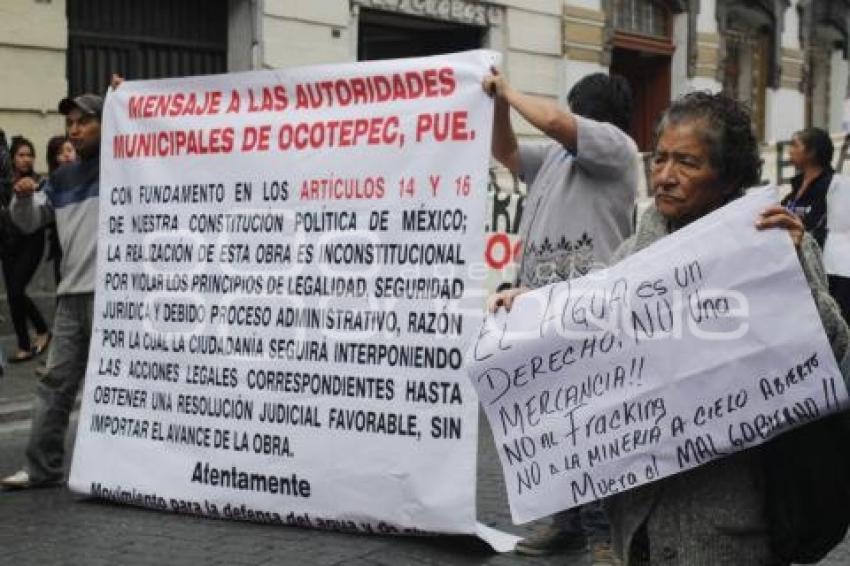 MENSAJE A LAS AUTORIDADES
MUNICIPALES DE OCOTEPEC, PUE.
CON FUNDAMENTO EN LOS ARTÍCULOS 14 Y 16
DE NUESTRA CONSTITUCIÓN POLÍTICA DE MÉXICO;
LA REALIZACIÓN DE ESTA OBRA ES INCONSTITUCIONAL
POR VIOLAR LOS PRINCIPIOS DE LEGALIDAD, SEGURIDAD
JURÍDICA Y DEBIDO PROCESO ADMINISTRATIVO, RAZÓN
POR LA CUAL LA CIUDADANÍA SEGUIRÁ INTERPONIENDO
LAS ACCIONES LEGALES CORRESPONDIENTES HASTA
OBTENER UNA RESOLUCIÓN JUDICIAL FAVORABLE, SIN
IMPORTAR EL AVANCE DE LA OBRA.
Atentamente
Movimiento para la defensa del agua
EL AGUA es un
DERECHO, NO Una
MERCANCIA!!
NO AL Fracking
NO a LA MINERIA A CIELO ABIERTO
Muera el MAL GOBIERNO!!
agencia
enfoque